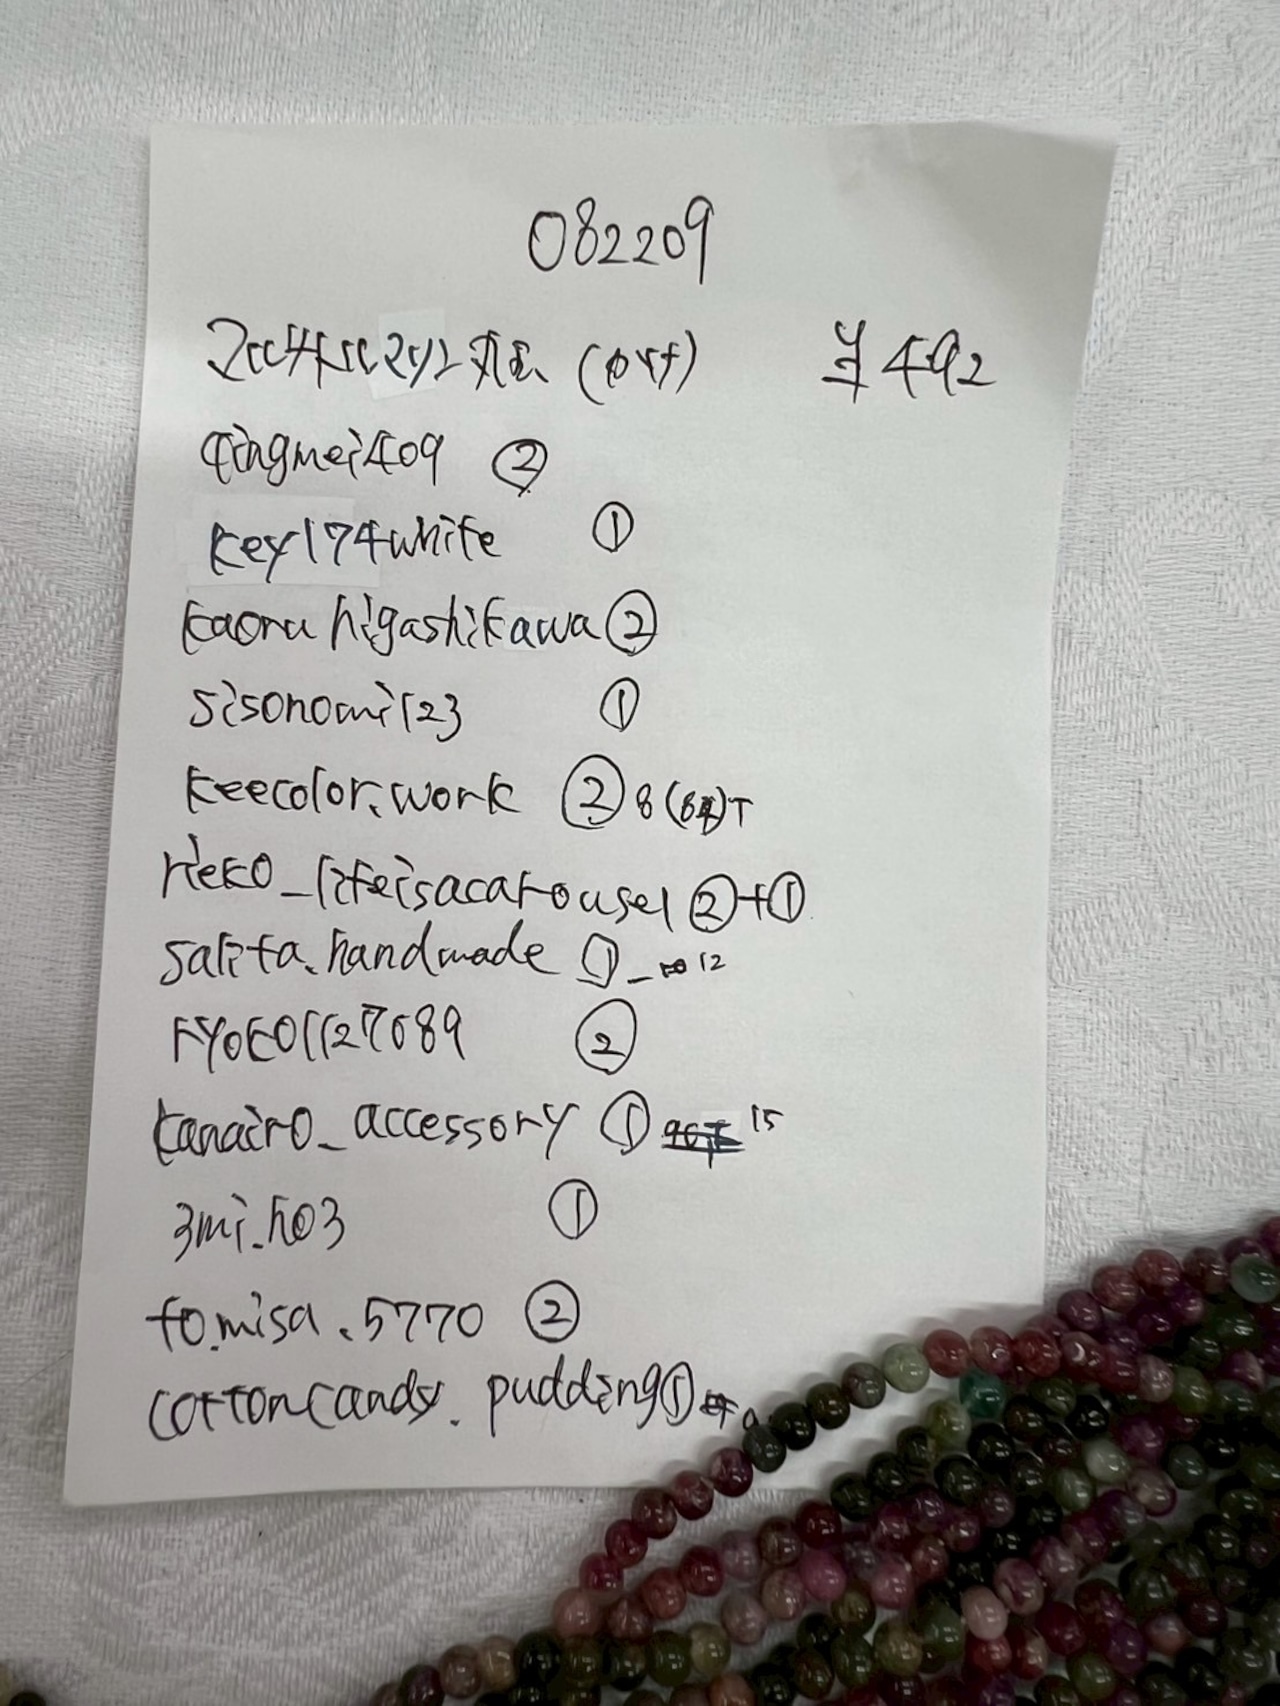 082209
¥492
qingmei409 ②
key174white ①
kaoru higashikawa ②
sisonomi123 ①
keecolor.work ② 8
rieko_lifeisacarousel ②+①
salita.handmade ① 12
ryoko1127689 ②
kanairo_accessory ① 15
3mi.ho3 ①
to.misa.5770 ②
cottoncandy.pudding ①